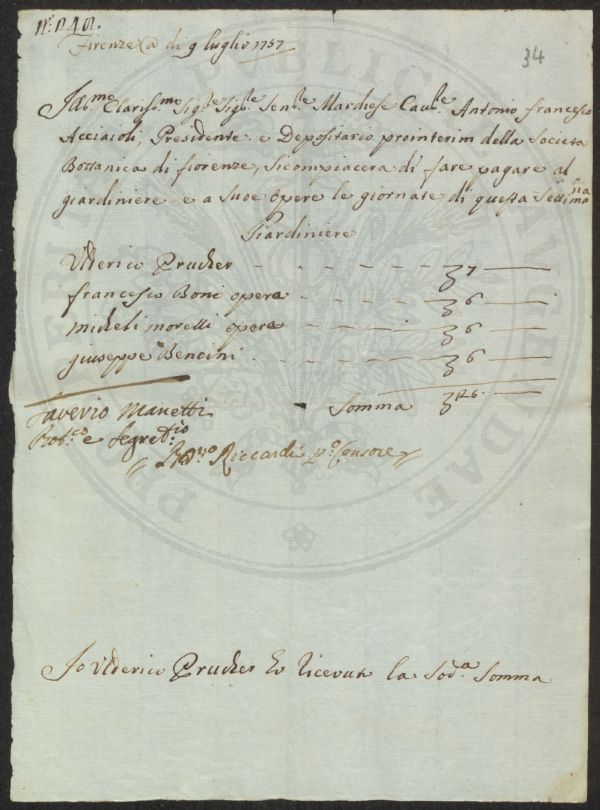 Firenze a di 9 luglio 1757
34
Clariss.mo Sig.re Sig.re Sen.re Marchese Cav.re Antonio francesco
Acciaioli, Presidente e Depositario prointerim della Societa
Bottanica di fiorenze, si compiacera di fare pagare al
giardiniere e a sue opere le giornate di questa Settima
na
Giardiniere
Ulderico Prucher 7
francesco Boni opera 6
micheli morelli opera 6
giuseppe Bencini 6
Saverio Manetti Somma
e Segret.rio
Riccardi P.o Censore
Io Ulderico Prucher Ho ricevuto la Sod.a Somma
PUBLICAE